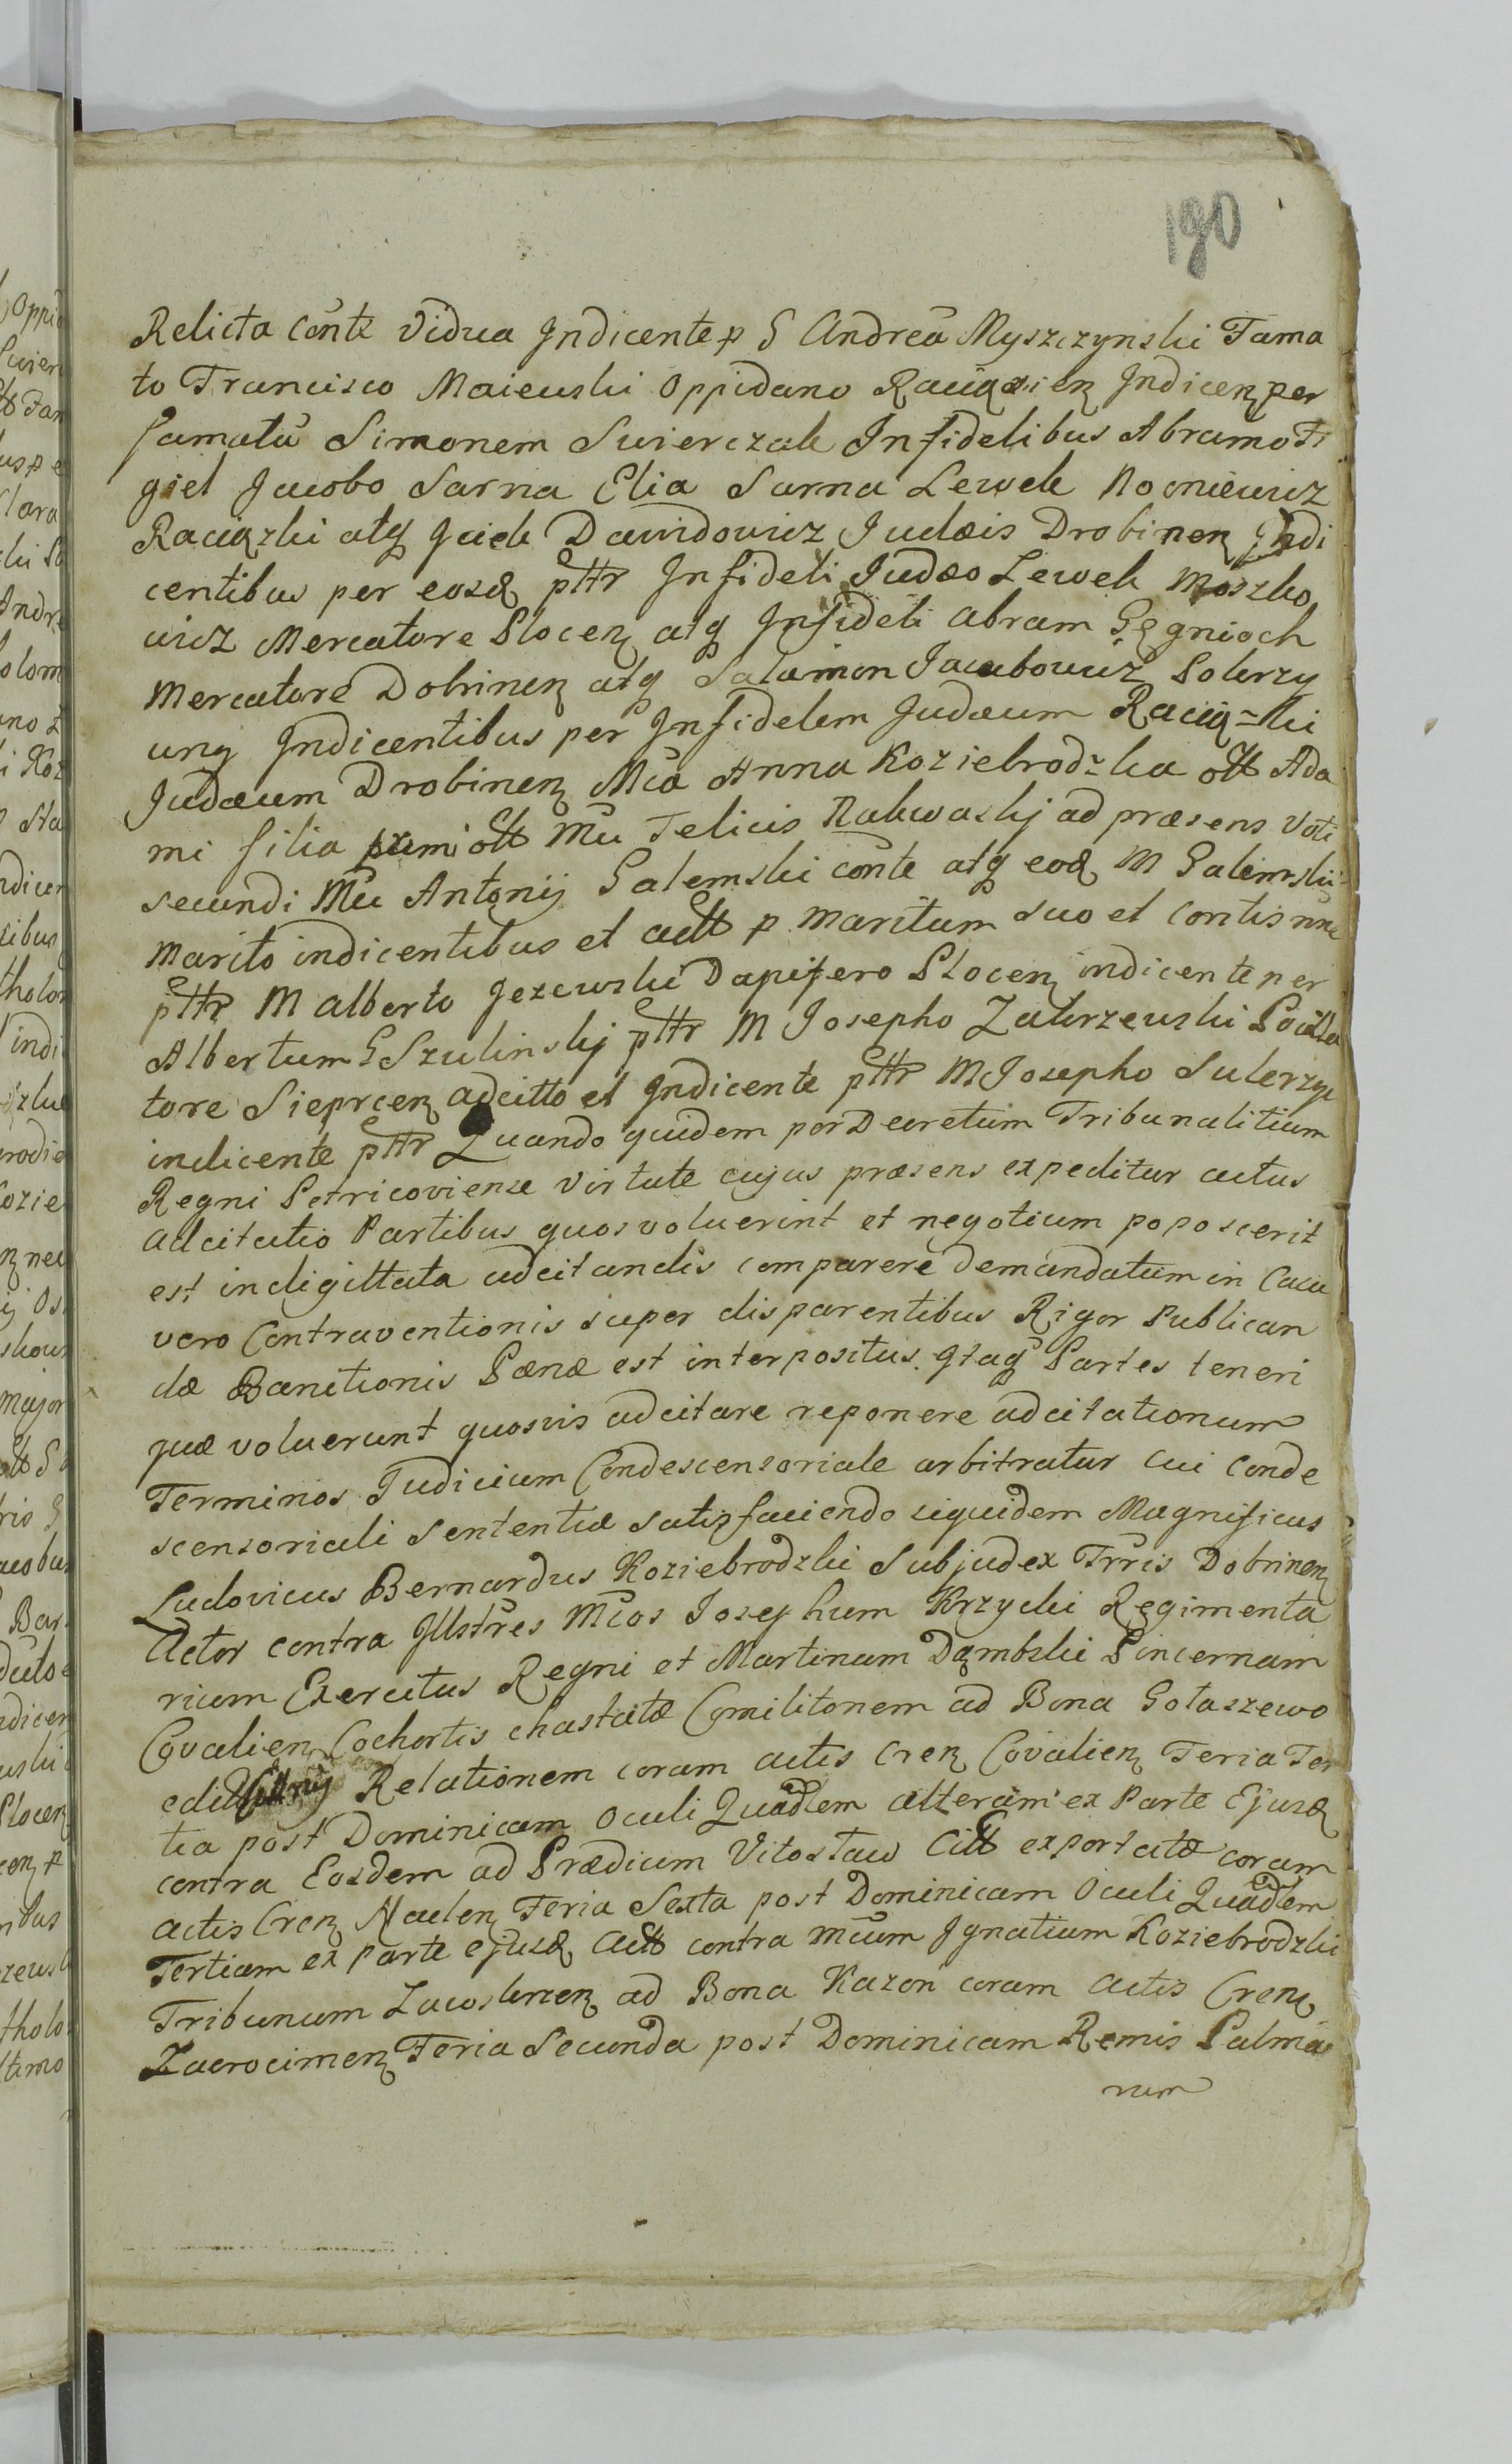 190
Relicta Conte Vidua Indicente p G Andrea Myszczynski Fama
to Francisco Maiewski Oppidano Raciązien Indicen per
famatū Simonem Swierczak Infidelibus Abramo Fi
giel Jacobo Sarna Elia Sarna Lewek Nocniewicz
Raciązki atq Jcick Dawidowicz Judæis Drobinen Indi
centibus per eosd pttr Infideli Judæo Lewek Moszko
wicz Mercatore Plocen atq Infideli Abram Gęgnioch
Mercatore Dobrinen atq Salamon Jacubowicz
ung Indicentibus per Infidelem Judæum Raciązki
Judæum Drobinen Mca Anna Koziebrodzka ott Ada
mi filia primi ott Mci Felicis Nakwaskj ad præsens Voti
secundi Mci Antonij Galemski conte atq eod M Galemski
Marito indicentibus et actt p Maritum suo et Contis nne
pttr M Alberto Jezewski Dapifero Plocen indicente per
Albertum G Szulinskj pttr M Josepho Zakrzewski Pocilla
tore Sieprcen adcitto et Indicente pttr M Josepho Sulerzyc
indicente pttr Quando quidem per Decretum Tribunalitium
Regni Petricoviense Virtute cujus præsens expeditur actus
Adcitatio Partibus quos voluerint et negotium poposcerit
est indigittata adcitandis comparere demandatum in Casu
vero Contraventionis super disparentibus Rigor Publican
dæ Banitionis Pænæ est interpositus. qtaq Partes teneri
quæ voluerunt quosvis adcitare reponere adcitationum
Terminos Judicium Condescensoriale arbitratur cui Conde
scensoriali Sententiæ satisfaciendo siquidem Magnificus
Ludovicus Bernardus Koziebrodzki Subjudex Trris Dobrinen
Actor contra Jllstres Mcos Josephum Krzycki Regimenta
rium Exercitus Regni et Martinum Dąmbski Pincernam
Covalien Cochortis chastatæ Comilitonem ad Bona Gołaszewo
Relationem coram actis Cren Covalien Feria Ter
tia post Dominicam Oculi Quadlem alteram ex Parte Ejusd
contra Eosdem ad Prædium Vitosław Citt exportatæ coram
actis Cren Naclen Feria Sexta post Dominicam Oculi Quadlem
Tertiam ex Parte ejusd Actt contra Mcum Ignatium Koziebrodzki
Tribunum Zawskrzen ad Bona Kazon coram Actis Cren
Zacrocimen Feria Secunda post Dominicam Remis Palma
rum